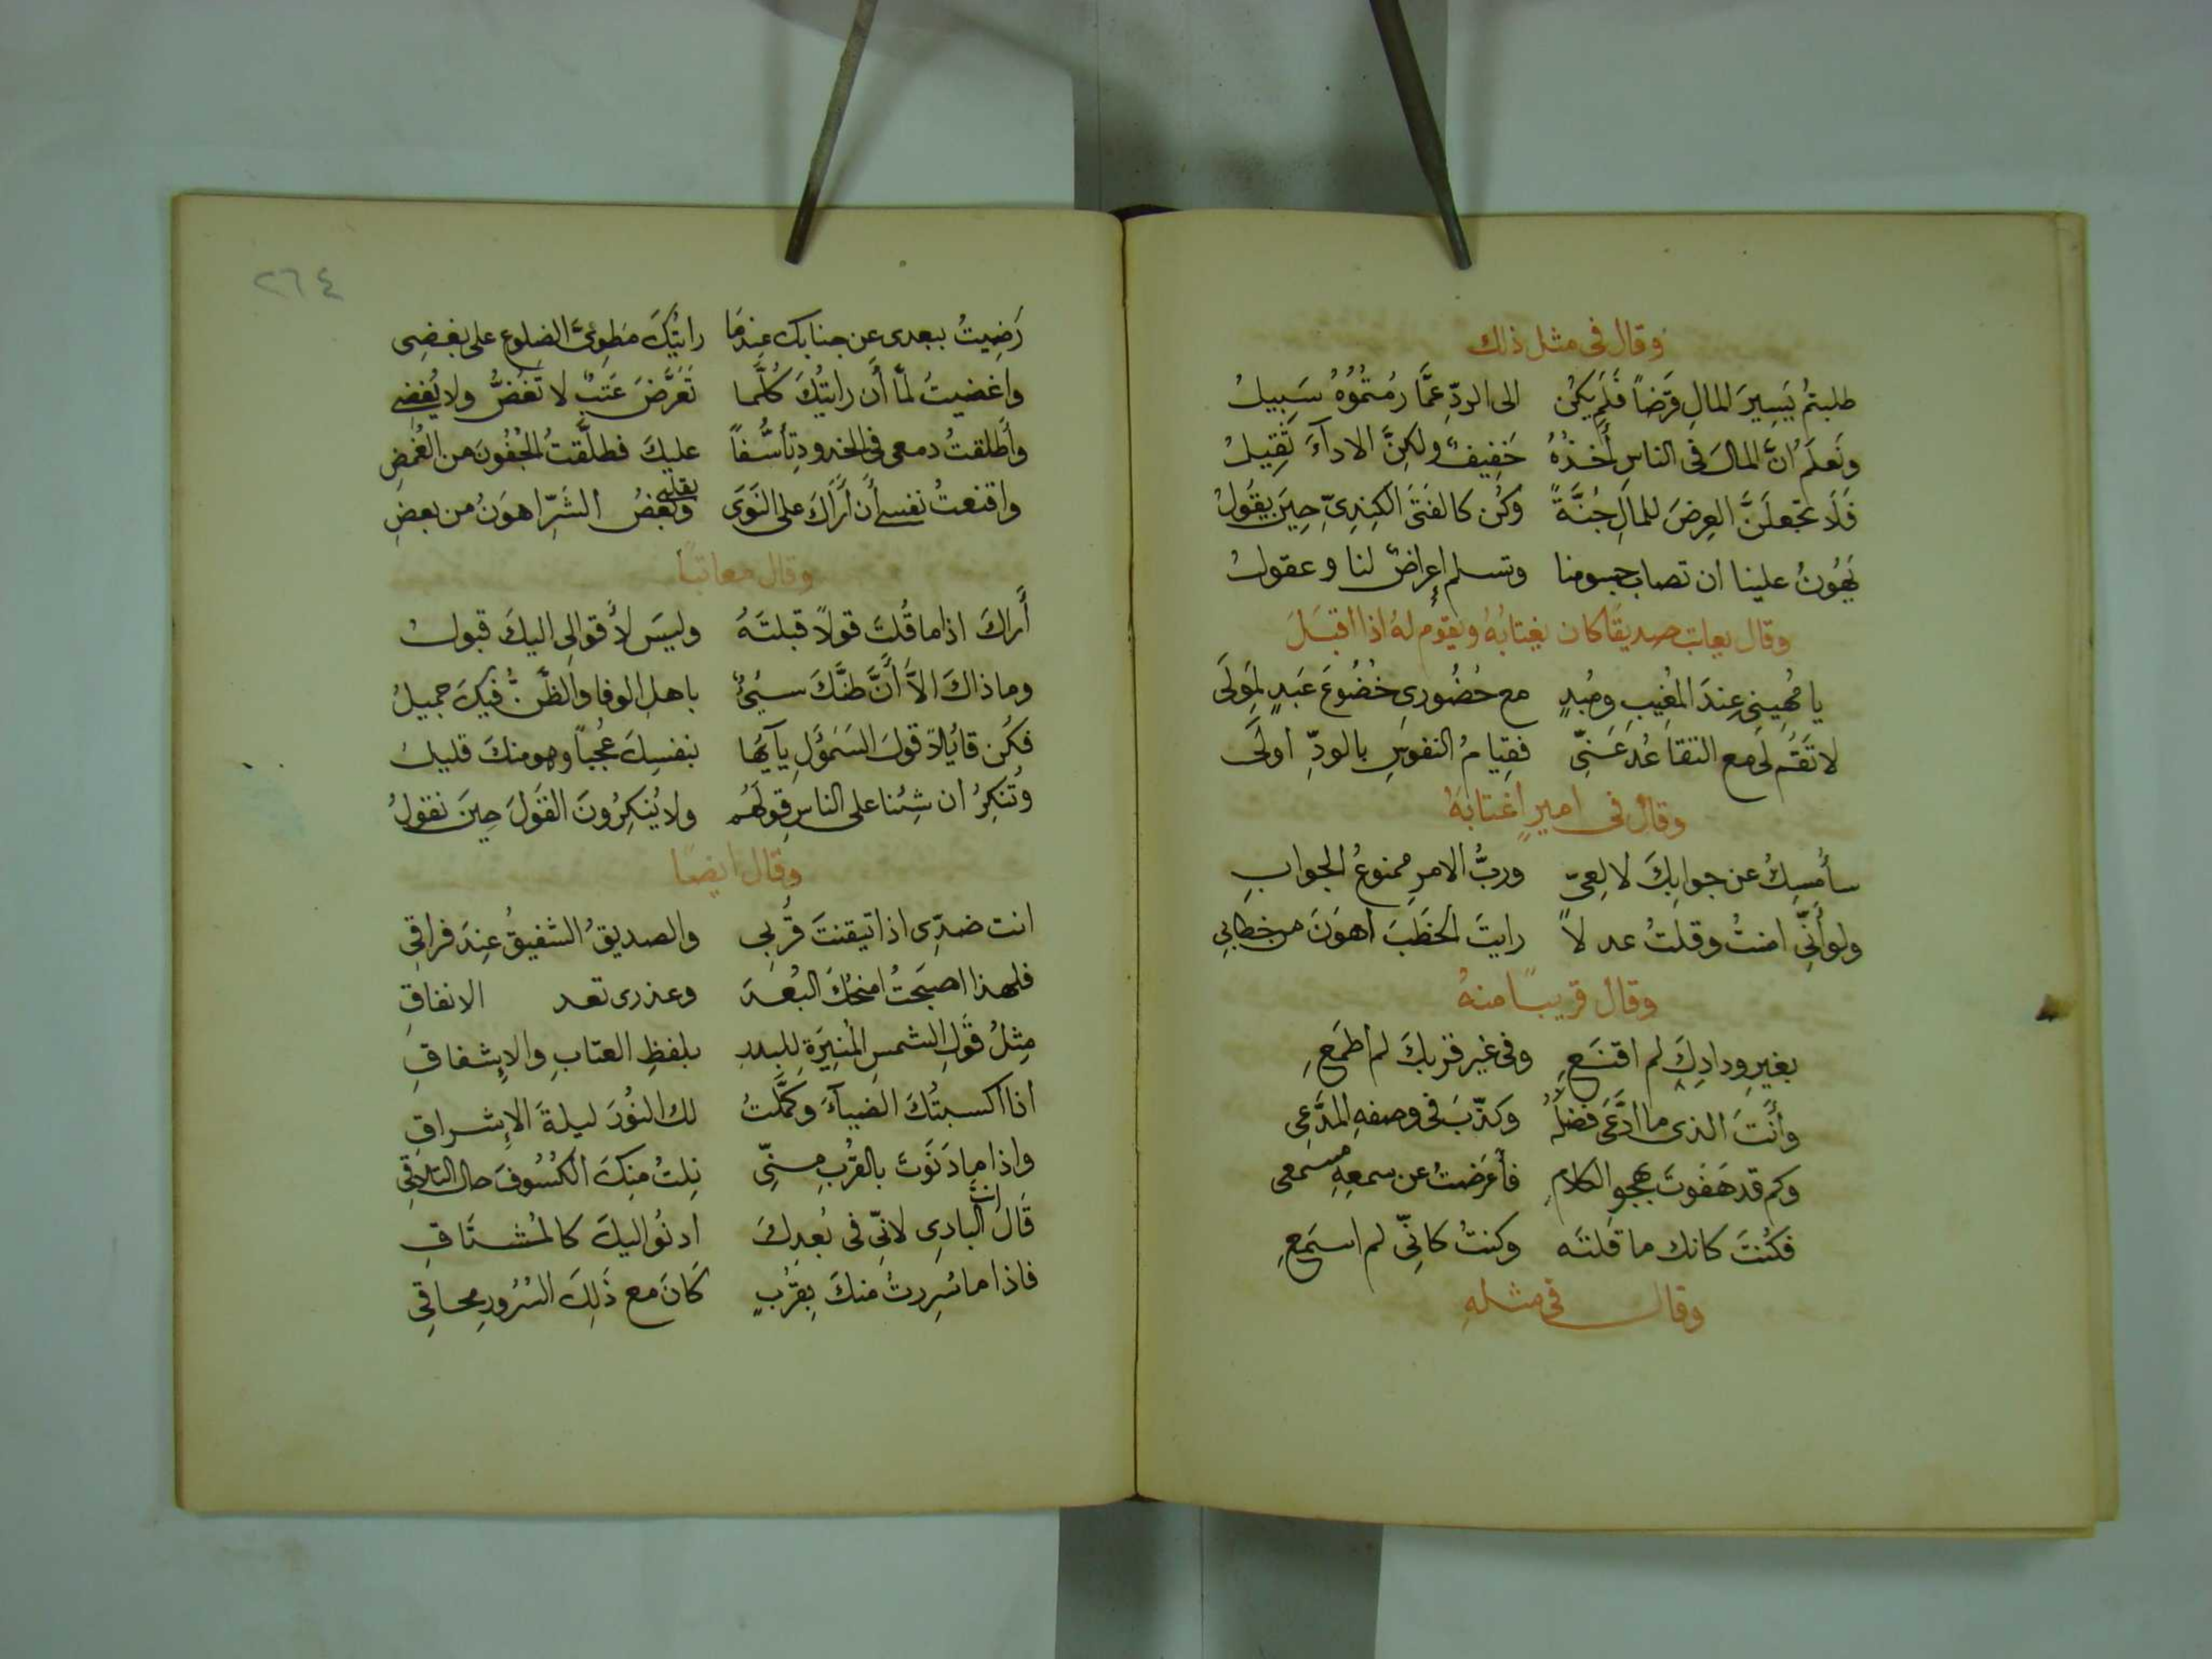 وقال فى مثل ذلك
طلبتم يَسِيرَ المالِ قرَضاً فَلَم يكن الى الردِّ عمَّا رُمتمُوُهُ سَبِيلُ
ونَعلَمُ انَّ المالَ فى الناسِ أَخذُهُ خَفِيفٌ ولكِنَّ الاداءَ ثَقِيلُ
فَلَا تجعلَنَّ العِرضَ للمالِ جُنَّةً وكُن كالفَتَى الكِندِىِّ حِينَ يقُولُ
يَهُونُ علينا ان تصاب جسومنا وتسلم إعراضٌ لنا وعقولُ
وقال يعاتب صديقًا كان يغتابُهُ ويقوُم لهُ اذا اقبَلَ
يا مُهِينِى عِندَ المُغِيبِ ومُبدٍ مع حُضُورِى خُضُوعَ عَبدٍ لمَولَى
لا تَقُم لى مع التقاعُدِ عَنِّى فقِيامُ النفوسِ بالودِّ اولَى
وقال فى اميرٍ اغتابهُ
سأُمسِكُ عن جوابِكَ لا لِعِىّ وربُّ الامرِ ممنوعُ الجوابِ
ولو أَنِّى امنتُ وقلتُ عدلاً رايتَ الخطَبَ اهوَنَ من خطابِى
وقال قريبًا منهُ
بغيرِ ودادِكَ لم اقنَعِ وفى غير قربكَ لم اطمَعِ
وأَنتَ الذى ما ادَّعَى فضلَهُ وكذّبَ فى وصفهِ المدَّعِى
وكم قد هَفَوتَ بهجوِ الكلامِ فأَعرَضتُ عن سمعِهِ مسمعى
فكُنتَ كانك ما قلتَه وكنتُ كانِّى لم اسمَعِ
وقال فى مثلهِ
٢٦٤
رَضِيتُ ببعدى عن جنابك عِندمَا رايتُكَ مَطوِىَّ الضلوعِ على بغضِى
واغضيتُ لمَّا أَن رايتُكَ كُلَّما تَعَرَّضَ عَتبٌ لا تَغُضُّ ولا يُغضِى
وأَطلقتُ دمعى فى الخدودِ تأسُّفاً عليكَ فطلَّقتُ الجُفُونَ من الغُمضِ
واقنعتُ نفسى أَن أَراكَ على النَوَى بقلبى وبَعضُ الشَرِّ اهوَنُ من بعضِ
وقال معاتباً
أَراكَ اذا ما قُلتَ قولاً قبلتَهُ وليسَ لأَقوالِى اليكَ قبولُ
وما ذاكَ الاَّ أَنَّ ظنَّكَ سَيِّئٌ باهلِ الوفا والظَّنُّ فيكَ جميلُ
فكُن قائِلاً قولَ السَمَؤَلِ يآيُّها بنفسِكَ عُجباً وهو منكَ قليلُ
وتُنكِرُ ان شِئنا على الناسِ قولَهُم ولا يُنكِرُونَ القَولَ حِينَ نقولُ
وقال ايضًا
انت ضدِّى اذا تيقنتَ قُربى والصديقُ الشفيقُ عِندَ فراقِى
فلهذا اصبَحتُ امنحُكَ البُعدَ وعذرى تعد الانفاقِ
مِثلُ قَولِ الشمسِ المُنِيَرةِ للبدرِ بلفظِ العتابِ والإِشفاقِ
اذا اكسبتُكَ الضياءَ وكمَّلتُ لك النُوُرَ ليلةَ الإِشراقِ
واذا ما دَنَوتَ بالقُربِ مِنّى نِلتُ مِنكَ الكُسُوفَ حال التلاقِى
قَالَ انتَ البادِى لانِّى فى بُعدِكَ ادنُو اليكَ كالمُشتَاقِ
فاذا ما سُرِرتُ منكَ بِقُربٍ كَانَ مع ذَلِكَ السُرُورِ محاقِى